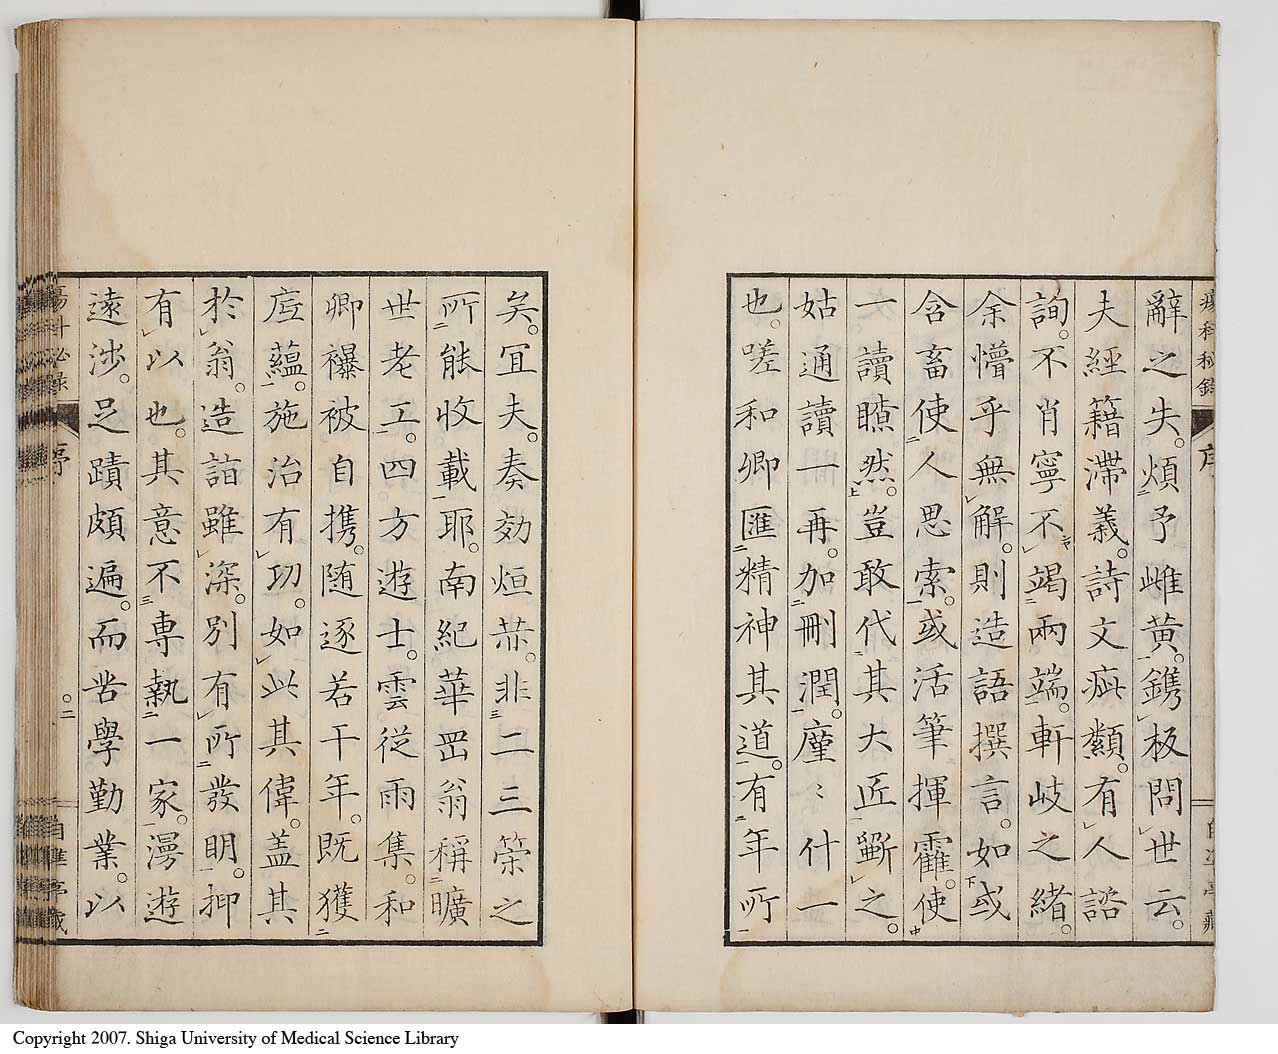 瘍科秘録
序
辭之失。煩予雌黄。鐫板問世云。
夫經籍滯義。詩文疵纇。有人諮
詢。不肖寧不竭兩端。軒岐之緒。
余懵乎無解。則造語撰言。如或
含畜使人思索。或活筆揮霍。使
一讀瞭然。豈敢代其大匠斲之。
姑通讀一再。加刪潤。廑〻什一
也。嗟和卿匯精神其道。有年所
矣。宜夫。奏効烜赫。非二三策之
所能收載耶。南紀華岡翁稱曠
世老工。四方遊士。雲從雨集。和
卿襆被自携。随逐若干年。既獲
底蘊。施治有功。如此其偉。盖其
於翁。造詣雖深。別有所發明。抑
有以也。其意不専執一家。漫遊
遠渉。足蹟頗遍。而苦學勤業。以
序
二
Copyright 2007. Shiga University of Medical Science Library